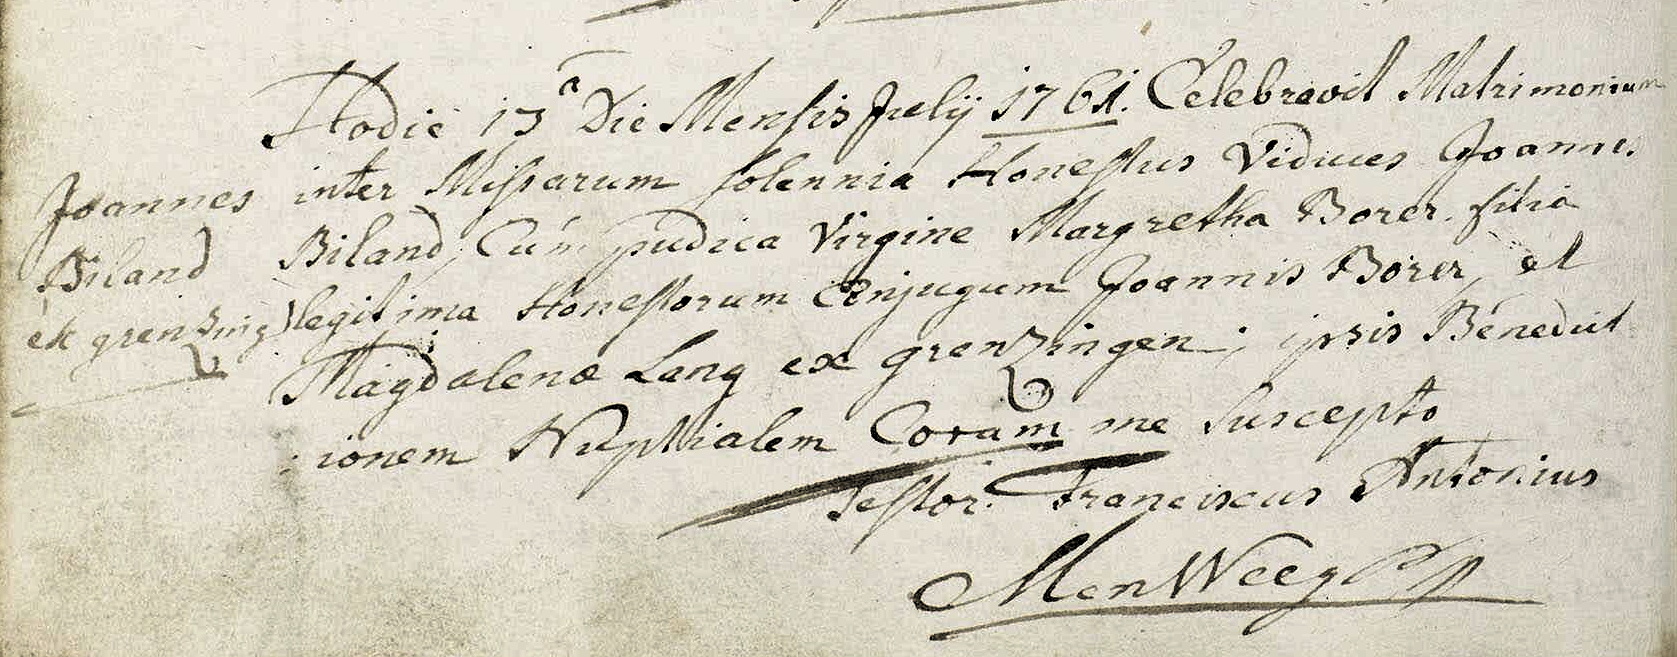 Hodie 13a Die Mensis Julij 1761. Celebravit Matrimonium
Joannes inter Missarum solennia Honestus Viduus Joannes
Biland Biland, Cum pudica Virgine Margretha Borer. filia
ex grenzing legitima Honestorum Conjugum Joannis Borer, et
Magdalenæ Lang ex grenzingen; ipsis Benedict
:ionem Nuptialem Coram me Suscepto
Testor. Franciscus Antonius